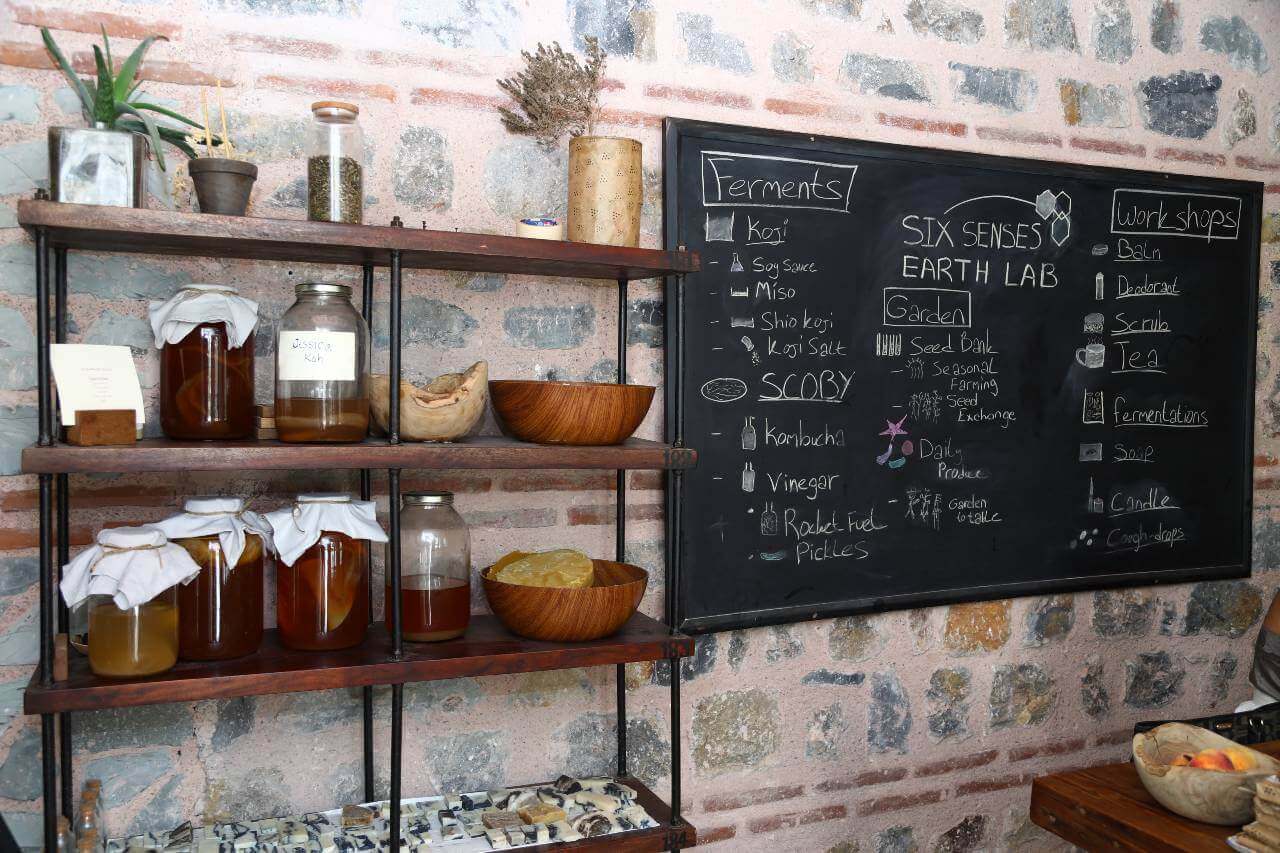 Jessica
Koh
Ferments
Koji
- Soy Sauce
- Miso
- Shio Koji
- Koji Salt
SCOBY
- Kombucha
- Vinegar
• Rocket Fuel
• Pickles
SIX SENSES
EARTH LAB
Garden
Seed Bank
- Seasonal
Farming
- Seed
Exchange
Daily
Produce
- Garden
to table
Workshops
Balm
Deodorant
Scrub
Tea
fermentations
Soap
Candle
Cough-drops